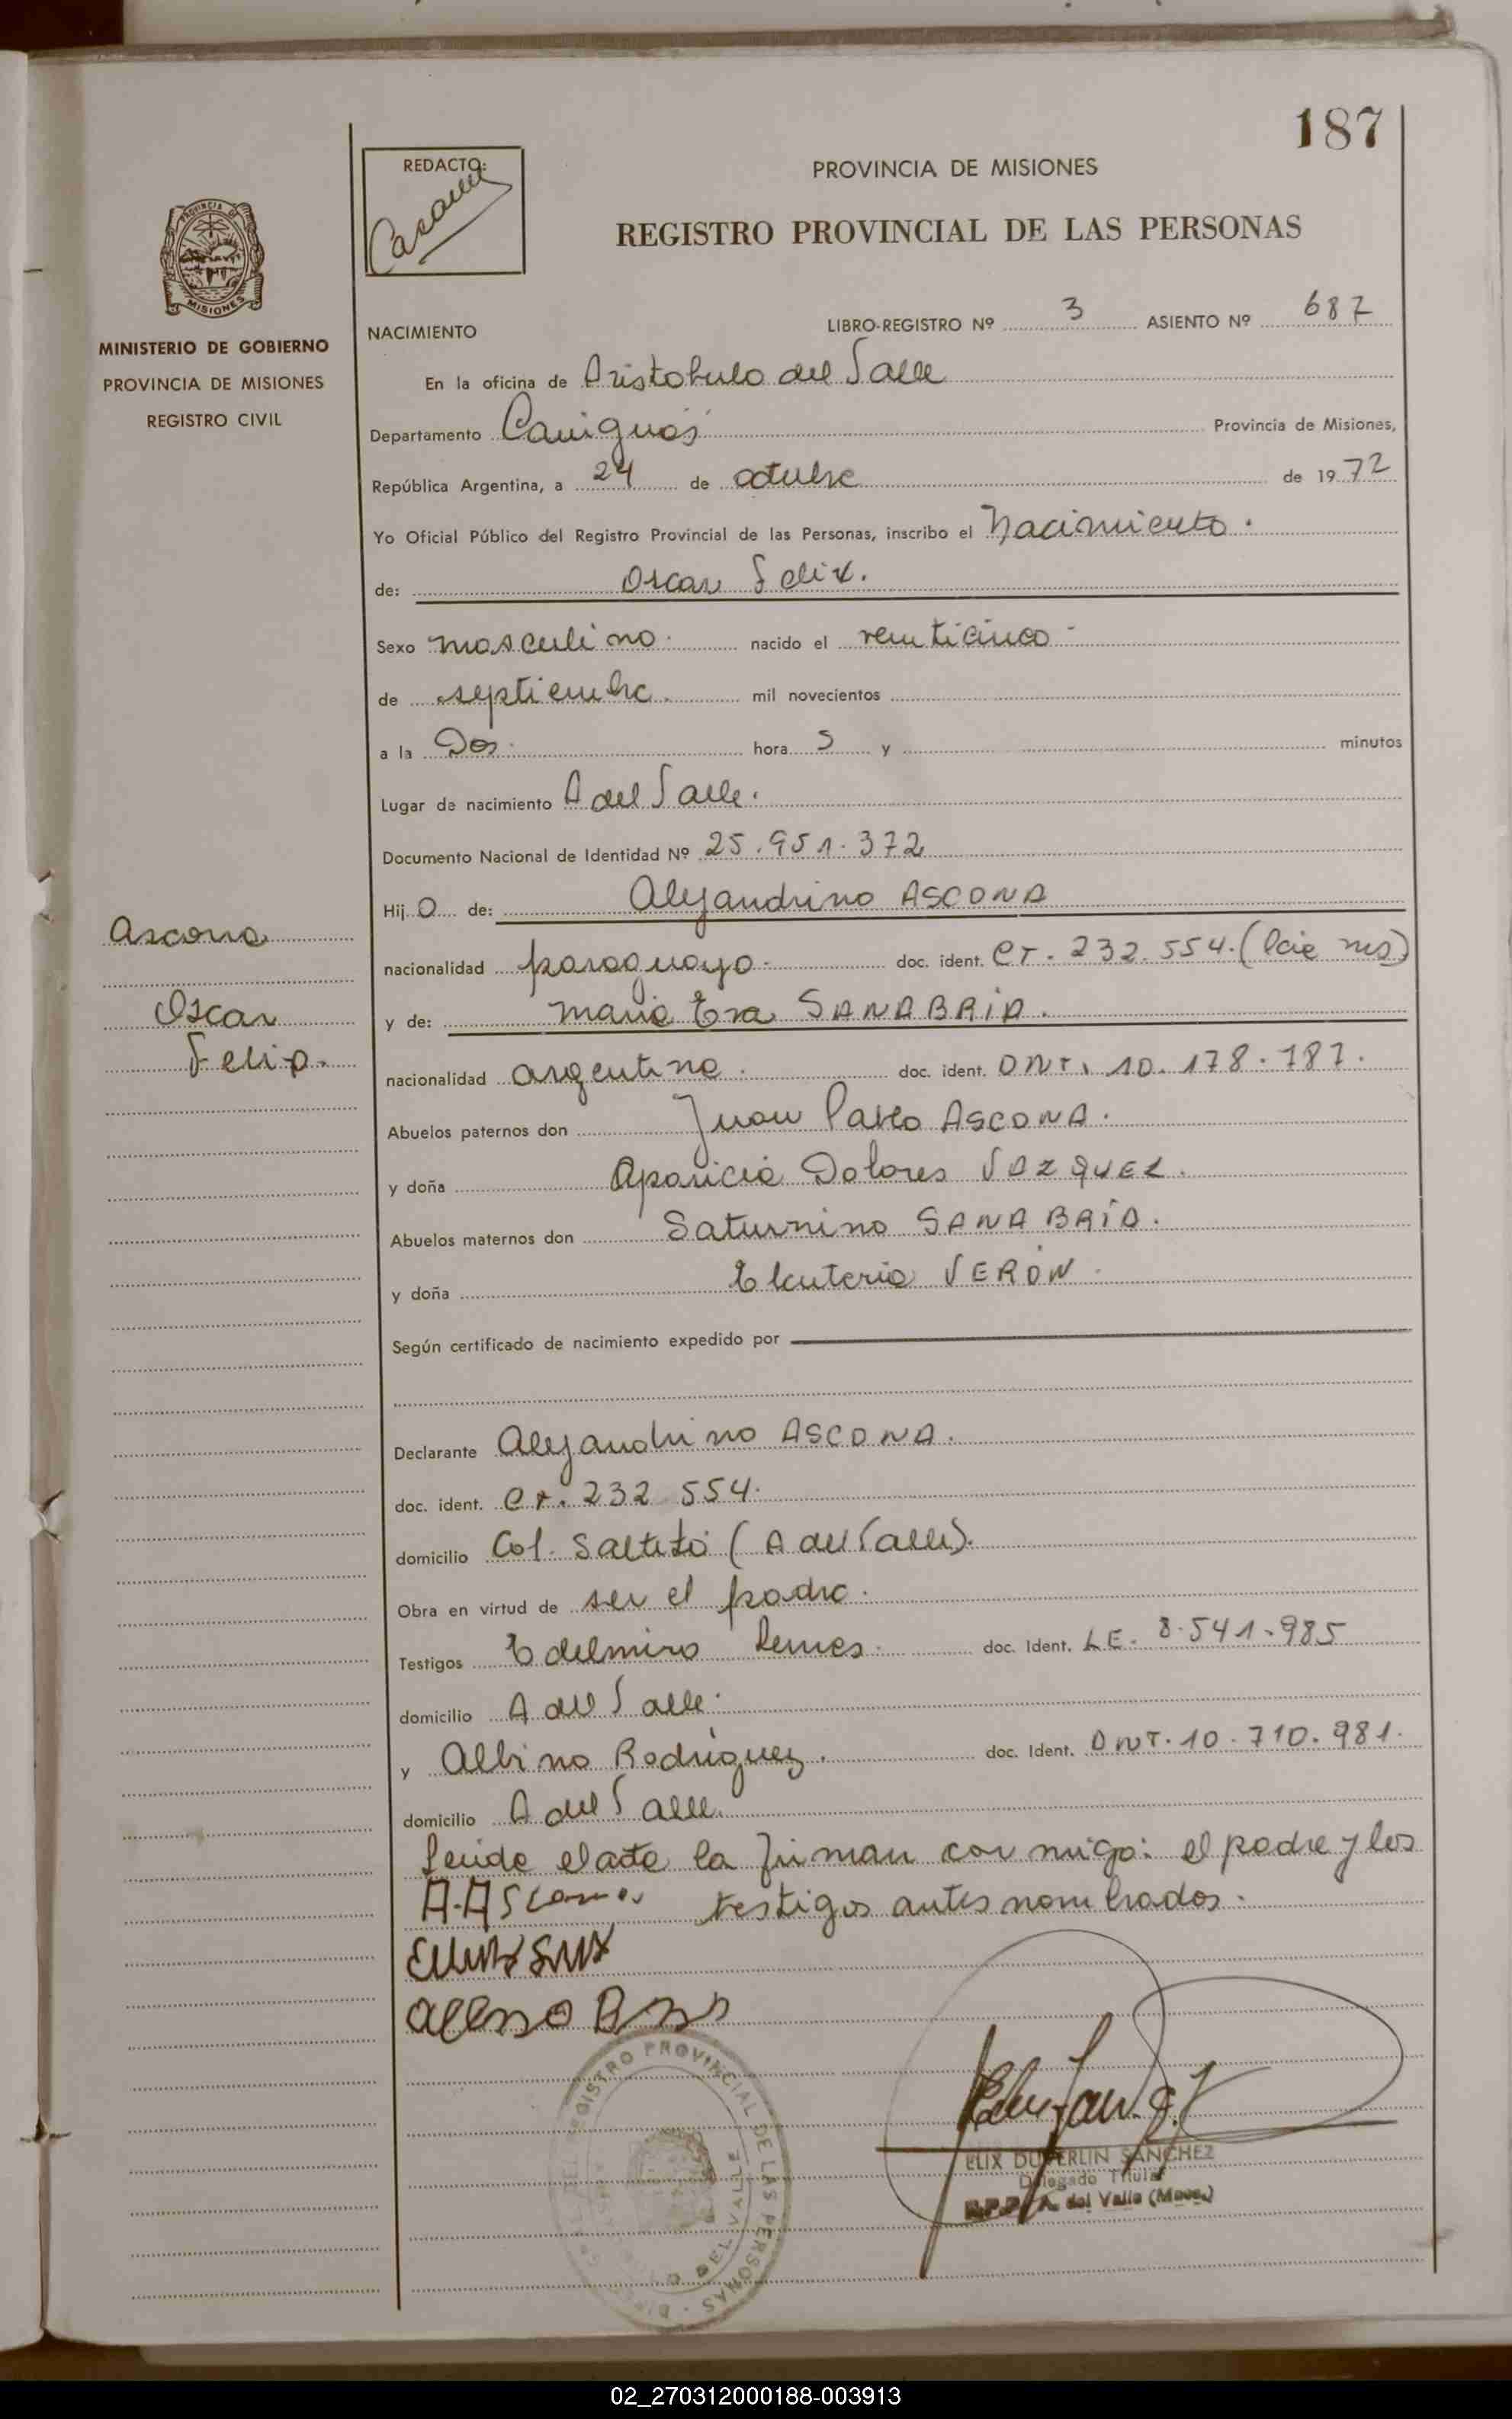 187
REDACTO:
PROVINCIA DE MISIONES
REGISTRO PROVINCIAL DE LAS PERSONAS
PROVINCIA DE
MISIONES
MINISTERIO DE GOBIERNO
PROVINCIA DE MISIONES
REGISTRO CIVIL
NACIMIENTO LIBRO-REGISTRO Nº 3 ASIENTO Nº 687
En la oficina de Aristobulo del Valle
Departamento Cainguás Provincia de Misiones,
República Argentina, a 24 de octubre de 1972
Yo Oficial Público del Registro Provincial de las Personas, inscribo el Nacimiento.
de: Oscar Felix.
Sexo masculino. nacido el veinticinco
de septiembre. mil novecientos
a la Dos. hora s y minutos
Lugar de nacimiento A del Valle.
Documento Nacional de Identidad Nº 25.951.372
Hij o de: Alejandrino ASCONA
Ascona
nacionalidad paraguayo. doc. ident. CI. 232.554. (Pcie Ms)
Oscar
y de: Maria Eva SANABRIA.
Felix.
nacionalidad argentina. doc. ident. DNI. 10.178.787.
Abuelos paternos don Juan Pablo ASCONA.
y doña Aparicia Dolores VAZQUEZ.
Abuelos maternos don Saturnino SANABRIA.
y doña Eleuteria VERON.
Según certificado de nacimiento expedido por
Declarante Alejandrino ASCONA.
doc. ident. CI. 232 554.
domicilio Col. Saltito (A del Valle).
Obra en virtud de ser el padre.
Testigos Edelmiro doc. Ident. LE. 8.541.985
domicilio A del Valle.
y Albino Rodriguez. doc. Ident. DNI. 10.710.981.
domicilio A del Valle.
Leida el acta la firman conmigo: el padre y los
A. Ascona testigos antes nombrados.
REGISTRO PROVINCIAL DE LAS PERSONAS
DEL VALLE
ELIX DUVERLIN SANCHEZ
Delegado Titular
R.P.P. A. del Valle (Mnes.)
02_270312000188-003913